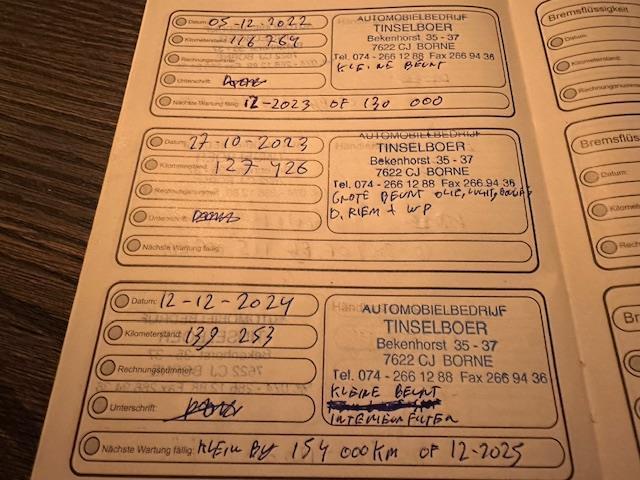 Datum: 05-12-2022
Kilometerstand: 116 764
Rechnungsnummer:
Unterschrift:
Nächste Wartung fällig: 12-2023 OF 130 000
AUTOMOBIELBEDRIJF
TINSELBOER
Bekenhorst 35 - 37
7622 CJ BORNE
Tel. 074 - 266 12 88 Fax 266 94 36
KLEINE BEURT
Datum: 27-10-2023
Kilometerstand: 127 426
Rechnungsnummer:
Unterschrift:
Nächste Wartung fällig:
AUTOMOBIELBEDRIJF
TINSELBOER
Bekenhorst 35 - 37
7622 CJ BORNE
Tel. 074 - 266 12 88 Fax 266 94 36
GROTE BEURT OLIE, LUCHT,
D. RIEM + WP
Datum: 12-12-2024
Kilometerstand: 139 253
Rechnungsnummer:
Unterschrift:
Nächste Wartung fällig: KLEIN BY 154 000 KM OF 12-2025
AUTOMOBIELBEDRIJF
TINSELBOER
Bekenhorst 35 - 37
7622 CJ BORNE
Tel. 074 - 266 12 88 Fax 266 94 36
KLEINE BEURT
INTERIEURFILTER
Bremsflüssigkeit
Datum:
Kilometerstand:
Rechnungsnummer
Bremsflüs
Datum:
Kilome
Rech
Br